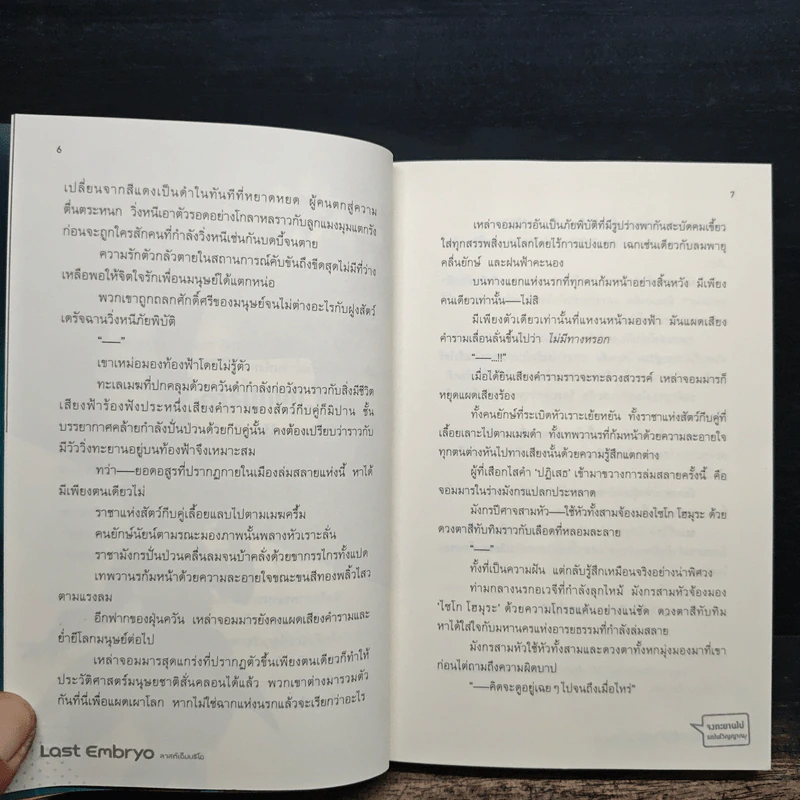 6
เปลี่ยนจากสีแดงเป็นดำในทันทีที่หยาดหยด ผู้คนตกสู่ความ
ตื่นตระหนก วิ่งหนีเอาตัวรอดอย่างโกลาหลราวกับลูกแมงมุมแตกรัง
ก่อนจะถูกใครสักคนที่กำลังวิ่งหนีเช่นกันบดบี้จนตาย
ความรักตัวกลัวตายในสถานการณ์คับขันถึงขีดสุดไม่มีที่ว่าง
เหลือพอให้จิตใจรักเพื่อนมนุษย์ได้แตกหน่อ
พวกเขาถูกถลกศักดิ์ศรีของมนุษย์จนไม่ต่างอะไรกับฝูงสัตว์
เดรัจฉานวิ่งหนีภัยพิบัติ
“——”
เขาเหม่อมองท้องฟ้าโดยไม่รู้ตัว
ทะเลเมฆที่ปกคลุมด้วยควันดำกำลังก่อวังวนราวกับสิ่งมีชีวิต
เสียงฟ้าร้องฟังประหนึ่งเสียงคำรามของสัตว์กีบคู่ก็มิปาน ชั้น
บรรยากาศคล้ายกำลังปั่นป่วนด้วยกีบคู่นั้น คงต้องเปรียบว่าราวกับ
มีวัววิ่งทะยานอยู่บนท้องฟ้าจึงเหมาะสม
ทว่า——ยอดอสูรที่ปรากฏกายในเมืองล่มสลายแห่งนี้ หาได้
มีเพียงตนเดียวไม่
ราชาแห่งสัตว์กีบคู่เลื้อยแลบไปตามเมฆครึ้ม
คนยักษ์นัยน์ตามรณะมองภาพนั้นพลางหัวเราะลั่น
ราชามังกรปั่นป่วนคลื่นลมจนบ้าคลั่งด้วยขากรรไกรทั้งแปด
เทพวานรก้มหน้าด้วยความละอายใจขณะขนสีทองพลิ้วไสว
ตามแรงลม
อีกฟากของฝุ่นควัน เหล่าจอมมารยังคงแผดเสียงคำรามและ
ย่ำยีโลกมนุษย์ต่อไป
เหล่าจอมมารสุดแกร่งที่ปรากฏตัวขึ้นเพียงตนเดียวก็ทำให้
ประวัติศาสตร์มนุษยชาติสั่นคลอนได้แล้ว พวกเขาต่างมารวมตัว
กันที่นี่เพื่อแผดเผาโลก หากไม่ใช่ฉากแห่งนรกแล้วจะเรียกว่าอะไร
Last Embryo ลาสท์เอ็มบริโอ
7
เหล่าจอมมารอันเป็นภัยพิบัติที่มีรูปร่างพากันสะบัดคมเขี้ยว
ใส่ทุกสรรพสิ่งบนโลกโดยไร้การแบ่งแยก เฉกเช่นเดียวกับลมพายุ
คลื่นยักษ์ และฝนฟ้าคะนอง
บนทางแยกแห่งนรกที่ทุกคนก้มหน้าอย่างสิ้นหวัง มีเพียง
คนเดียวเท่านั้น——ไม่สิ
มีเพียงตัวเดียวเท่านั้นที่แหงนหน้ามองฟ้า มันแผดเสียง
คำรามเลื่อนลั่นขึ้นไปว่า ไม่มีทางหรอก
“——...!!”
เมื่อได้ยินเสียงคำรามราวจะทะลวงสวรรค์ เหล่าจอมมารก็
หยุดแผดเสียงร้อง
ทั้งคนยักษ์ที่ระเบิดหัวเราะเย้ยหยัน ทั้งราชาแห่งสัตว์กีบคู่ที่
เลื้อยเลาะไปตามเมฆดำ ทั้งเทพวานรที่ก้มหน้าด้วยความละอายใจ
ทุกตนต่างหันไปทางเสียงนั้นด้วยความรู้สึกแตกต่าง
ผู้ที่เสือกไสคำ ‘ปฏิเสธ’ เข้ามาขวางการล่มสลายครั้งนี้ คือ
จอมมารในร่างมังกรแปลกประหลาด
มังกรปีศาจสามหัว——ใช้หัวทั้งสามจ้องมองไซโก โฮมุระ ด้วย
ดวงตาสีทับทิมราวกับเลือดที่หลอมละลาย
“——”
ทั้งที่เป็นความฝัน แต่กลับรู้สึกเหมือนจริงอย่างน่าพิศวง
ท่ามกลางนรกอเวจีที่กำลังลุกไหม้ มังกรสามหัวจ้องมอง
‘ไซโก โฮมุระ’ ด้วยความโกรธแค้นอย่างแน่ชัด ดวงตาสีทับทิม
หาได้ใส่ใจกับมหานครแห่งอารยธรรมที่กำลังล่มสลาย
มังกรสามหัวใช้หัวทั้งสามและดวงตาทั้งหกมุ่งมองมาที่เขา
ก่อนไต่ถามถึงความผิดบาป
“——คิดจะดูอยู่เฉย ๆ ไปจนถึงเมื่อไหร่”